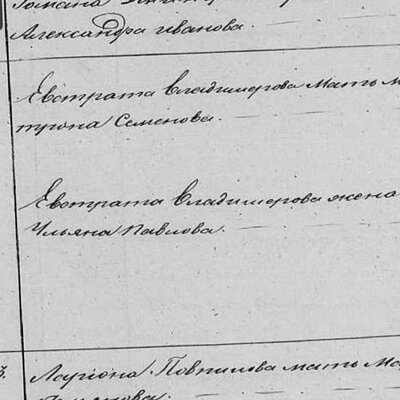 Александра Иванова
Евстрата Владимерова мать М
трона Семенова.
Евстрата Владимерова жена
Ульяна Павлова.
3. Лариона мать Ма